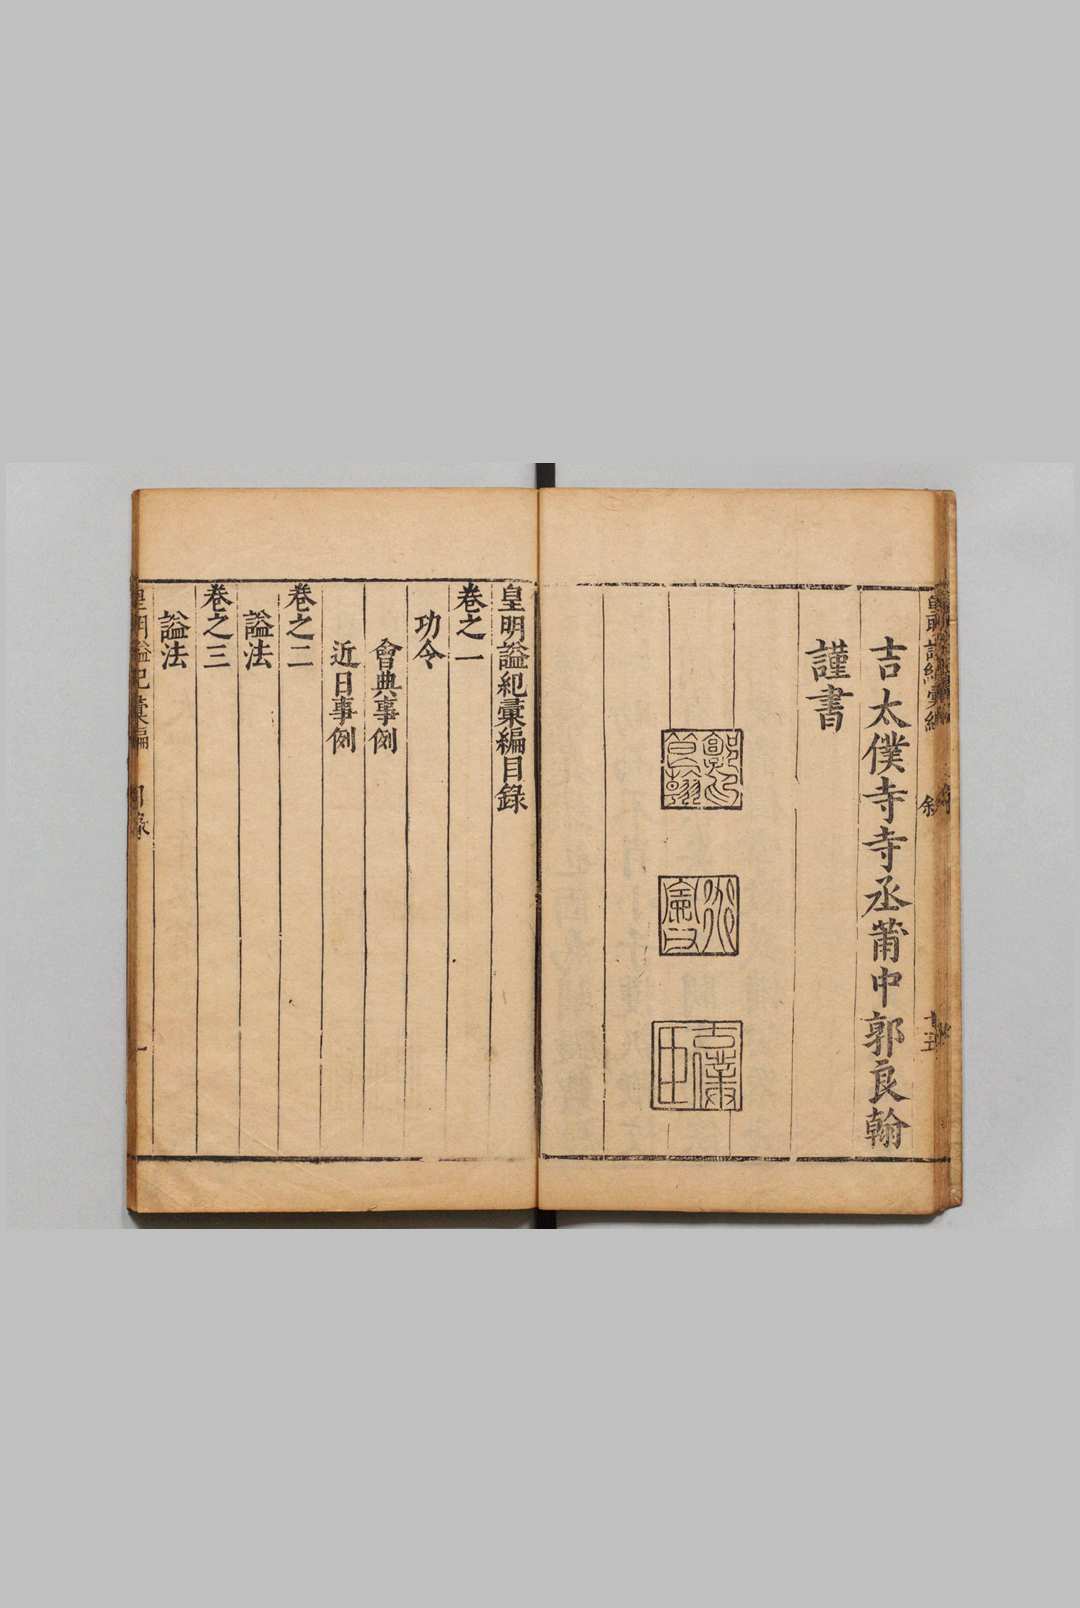 吉太僕寺寺丞莆中郭良翰
謹書
皇明謚紀彙編目錄
卷之一
功令
會典事例
近日事例
卷之二
謚法
卷之三
謚法
皇明謚紀彙編 目錄 一